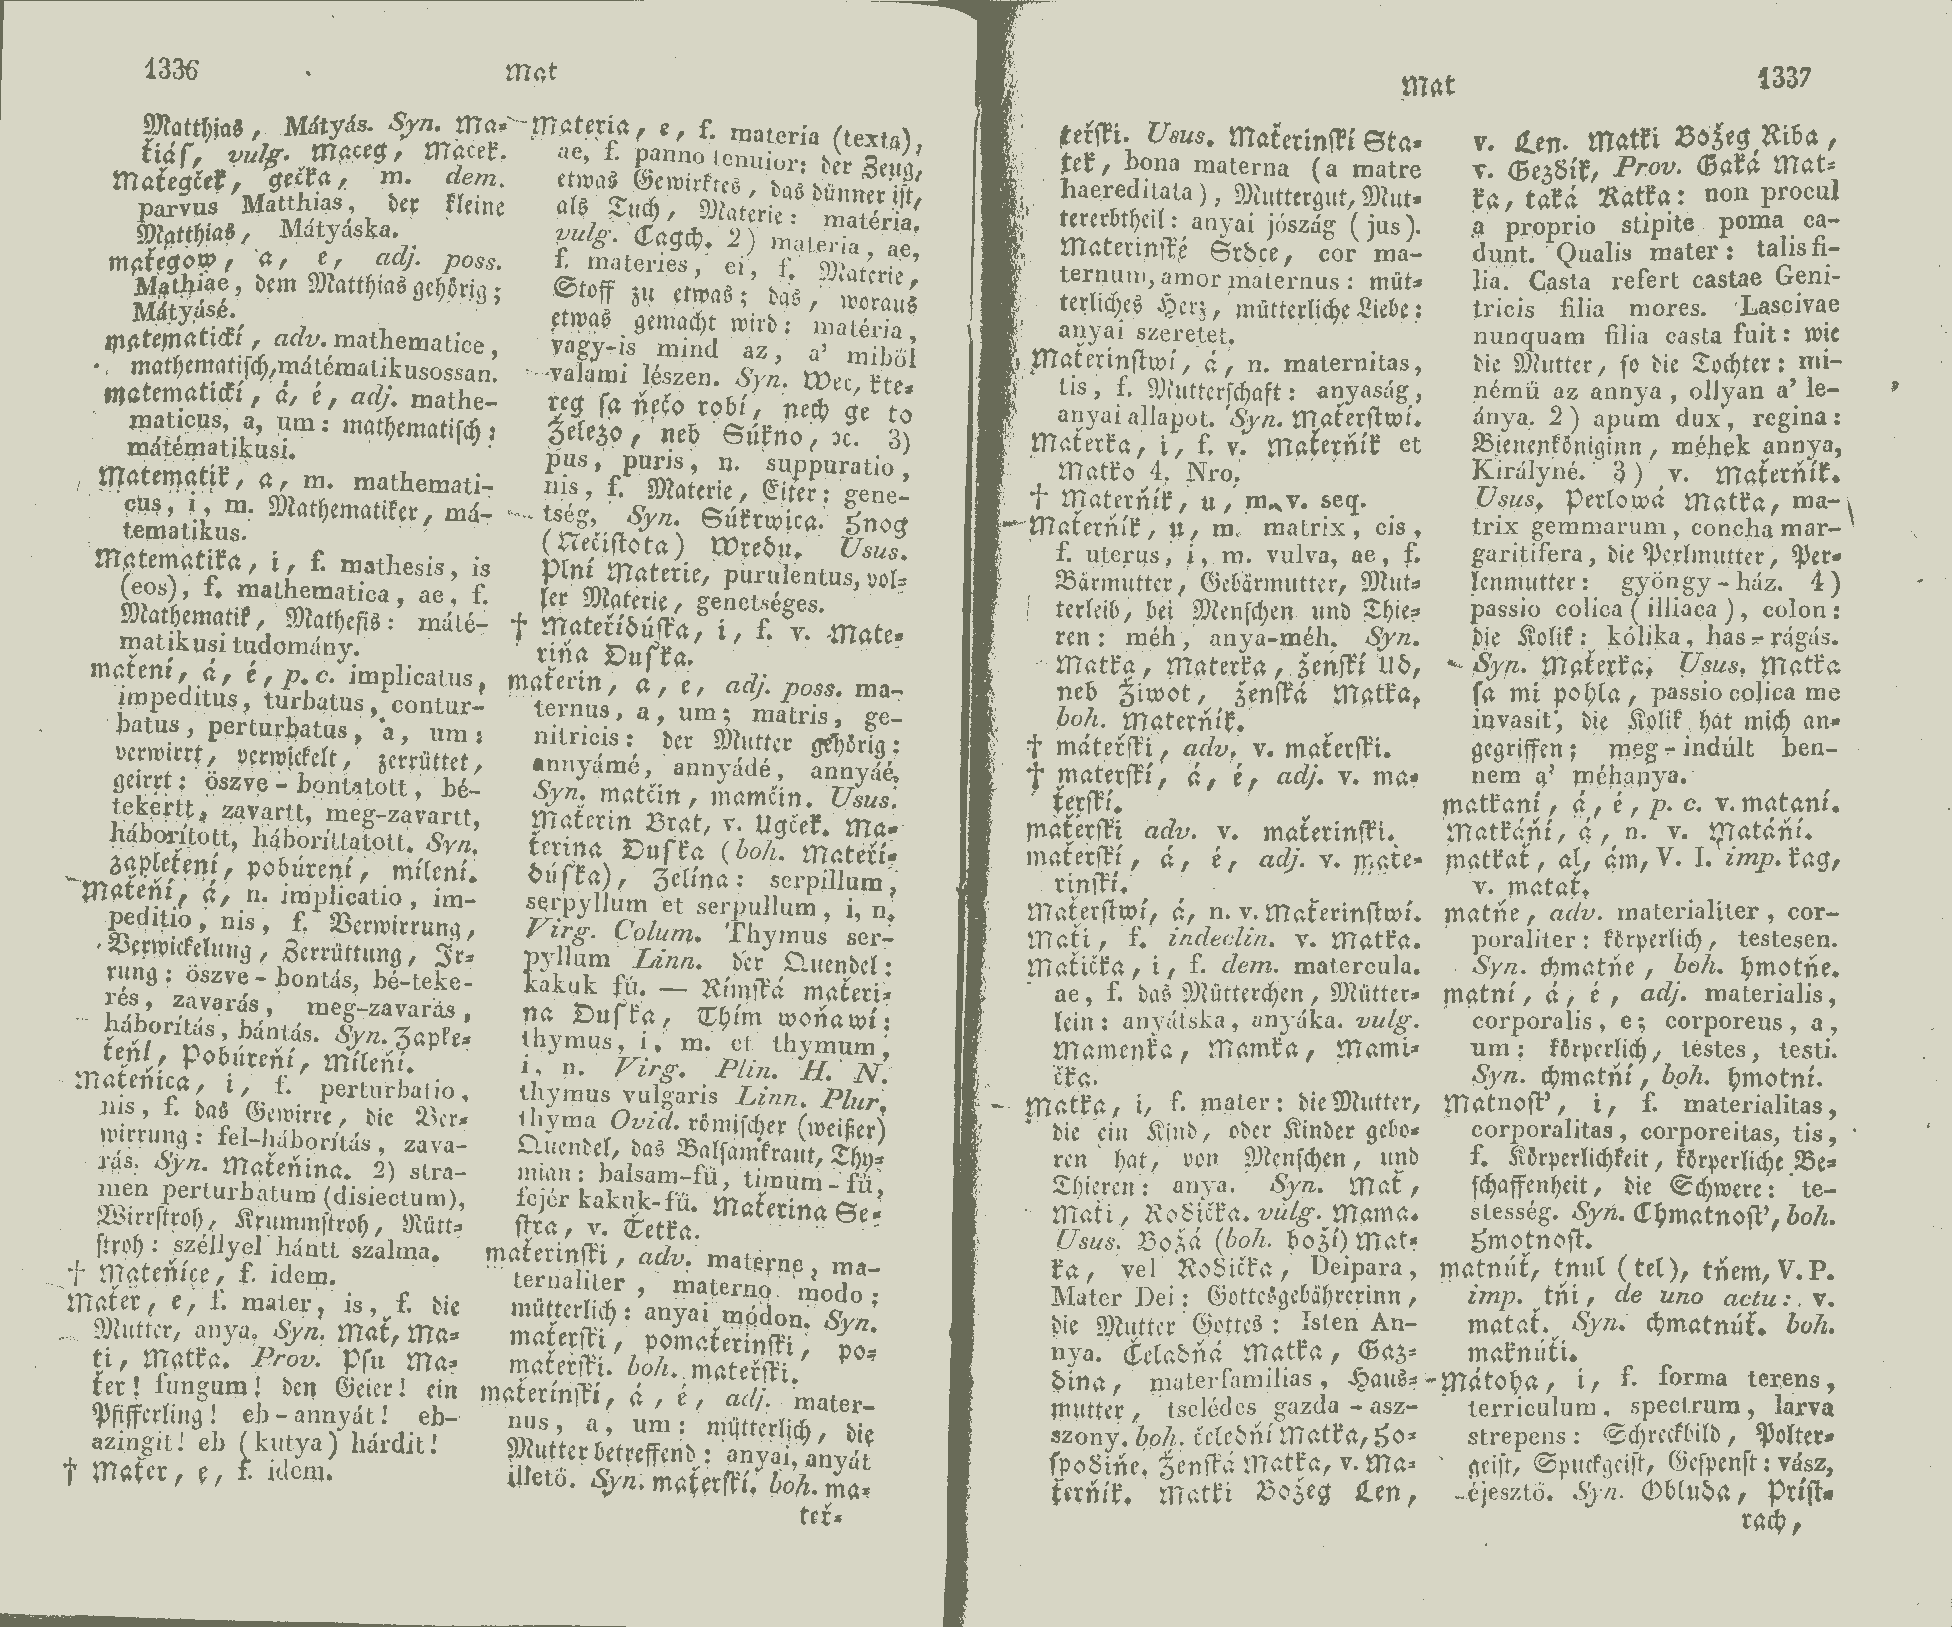 1336
Mat
Matthias, Mátyás. Syn. Ma-
ťiás, vulg. Maceg, Macek.
Maťegček, gečka, m. dem.
parvus Matthias, der kleine
Matthias, Mátyáska.
maťegow, a, e, adj. poss.
Mathiae, dem Matthias gehörig;
Mátyásé.
matematicki, adv. mathematice,
mathematisch, mátématikusossan.
matematickí, á, é, adj. mathe-
maticus, a, um: mathematisch:
mátématikusi.
Matematik, a, m. mathemati-
cus, i, m. Mathematiker, má-
tematikus.
Matematika, i, f. mathesis, is
(eos), f. mathematica, ae, f.
Mathematik, Mathesis: máté-
matikusi tudomány.
maťení, á, é, p. c. implicatus,
impeditus, turbatus, contur-
batus, perturbatus, a, um:
verwirrt, verwickelt, zerrüttet,
geirrt: öszve-bontatott, bé-
tekertt, zavartt, meg-zavartt,
háborított, háboríttatott. Syn.
zapleťení, pobúrení, mílení.
Maťeňí, á, n. implicatio, im-
peditio, nis, f. Verwirrung,
Verwickelung, Zerrüttung, Ir-
rung: öszve-bontás, bé-teke-
rés, zavarás, meg-zavarás,
háborítás, bántás. Syn. Zaple-
ťeňí, Pobúreňí, Míleňí.
Maťeňica, i, f. perturbatio,
nis, f. das Gewirre, die Ver-
wirrung: fel-háborítás, zava-
rás. Syn. Maťeňina. 2) stra-
men perturbatum (disiectum),
Wirrstroh, Krummstroh, Rütt-
stroh: széllyel hántt szalma.
† Mateňice, f. idem.
Mater, e, f. mater, is, f. die
Mutter, anya. Syn. Mať, Ma-
ti, Matka. Prov. Psu Ma-
ťer! fungum! den Geier! ein
Pfifferling! eb-annyát! eb-
azingit! eb (kutya) hárdit!
† Maťer, e, f. idem.
Materia, e, f. materia (texta),
ae, f. panno tenuior: der Zeug,
etwas Gewirktes, das dünner ist,
als Tuch, Materie: matéria.
vulg. Cagch. 2) materia, ae,
f. materies, ei, f. Materie,
Stoff zu etwas; das, woraus
etwas gemacht wird: matéria,
vagy-is mind az, a' miböl
valami lészen. Syn. Wec, kte-
reg sa ňečo robí, nech ge to
Železo, neb Súkno, ꝛc. 3)
pus, puris, n. suppuratio,
nis, f. Materie, Eiter: gene-
tség. Syn. Súkrwica. Hnog
(Nečistota) Wredu. Usus.
Plní Materie, purulentus, vol-
ler Materie, genetséges.
† Mateřídúska, i, f. v. Mate-
riňa Duska.
maťerin, a, e, adj. poss. ma-
ternus, a, um; matris, ge-
nitricis: der Mutter gehörig:
annyámé, annyádé, annyáé.
Syn. matčin, mamčin. Usus.
Maťerin Brat, v. Ugček. Ma-
ťerina Duska (boh. Mateří-
dúska), Zelína: serpillum,
serpyllum et serpullum, i, n.
Virg. Colum. Thymus ser-
pyllum Linn. der Quendel:
kakuk fü. — Rímská maťeri-
na Duska, Thím woňawí:
thymus, i, m. et thymum,
i, n. Virg. Plin. H. N.
thymus vulgaris Linn. Plur.
thyma Ovid. römischer (weißer)
Quendel, das Balsamkraut, Thy-
mian: balsam-fü, timum-fü,
fejér kakuk-fü. Maťerina Se-
stra, v. Tetka.
maťerinski, adv. materne, ma-
ternaliter, materno modo:
mütterlich: anyai módon. Syn.
maťerski, pomaťerinski, po-
maťerski. boh. mateřski.
maťerinskí, á, é, adj. mater-
nus, a, um: mütterlich, die
Mutter betreffend: anyai, anyát
illetö. Syn. maťerskí. boh. ma-
teř-
Mat
1337
teřski. Usus. Maťerinskí Sta-
tek, bona materna (a matre
haereditata), Muttergut, Mut-
tererbtheil: anyai jószág (jus).
Materinské Srdce, cor ma-
ternum, amor maternus: müt-
terliches Herz, mütterliche Liebe:
anyai szeretet.
Maťerinstwí, á, n. maternitas,
tis, f. Mutterschaft: anyaság,
anyai allapot. Syn. Maťerstwí.
Maťerka, i, f. v. Maťerňík et
Matko 4. Nro.
† Materňík, u, m. v. seq.
Maťerňík, u, m. matrix, cis,
f. uterus, i, m. vulva, ae, f.
Bärmutter, Gebärmutter, Mut-
terleib, bei Menschen und Thie-
ren: méh, anya-méh. Syn.
Matka, Materka, ženskí Ud,
neb Život, ženská Matka,
boh. Materňík.
† máteřski, adv. v. maťerski.
† materskí, á, é, adj. v. ma-
ťerskí.
maťerski adv. v. maťerinski.
maťerskí, á, é, adj. v. mate-
rinskí.
Maťerstwí, á, n. v. Maťerinstwí.
Mati, f. indeclin. v. Matka.
Matička, i, f. dem. matercula.
ae, f. das Mütterchen, Mütter-
lein: anyátska, anyáka. vulg.
Mamenka, Mamka, Mami-
čka.
Matka, i, f. mater: die Mutter,
die ein Kind, oder Kinder gebo-
ren hat, von Menschen, und
Thieren: anya. Syn. Mať,
Mati, Rodička. vulg. Mama.
Usus. Božá (boh. boží) Mat-
ka, vel Rodička, Deipara,
Mater Dei: Gottesgebährerinn,
die Mutter Gottes: Isten An-
nya. Čeladňá Matka, Gaz-
dina, materfamilias, Haus-
mutter, tselédes gazda-asz-
szony. boh. čeledňí Matka, Ho-
spodiňe. Ženská Matka, v. Ma-
ťerňík. Matki Božeg Len,
v. Len. Matki Božeg Riba,
v. Gezdík, Prov. Gaká Mat-
ka, taká Katka: non procul
a proprio stipite poma ca-
dunt. Qualis mater: talis fi-
lia. Casta refert castae Geni-
tricis filia mores. Lascivae
nunquam filia casta fuit: wie
die Mutter, so die Tochter: mi-
némü az annya, ollyan a' le-
ánya. 2) apum dux, regina:
Bienenköniginn, méhek annya,
Királyné. 3) v. Maťerňík.
Usus. Perlowá Matka, ma-
trix gemmarum, concha mar-
garitifera, die Perlmutter, Per-
lenmutter: gyöngy-ház. 4)
passio colica (illiaca), colon:
die Kolik: kólika, has-rágás.
Syn. Maťerka. Usus. Matka
sa mi pohla, passio colica me
invasit, die Kolik hat mich an-
gegriffen; meg-indúlt ben-
nem a' méhanya.
matkaní, á, é, p. c. v. mataní.
Matkáňí, á, n. v. Matáňí.
matkať, al, ám, V. I. imp. kag,
v. matať.
matňe, adv. materialiter, cor-
poraliter: körperlich, testesen.
Syn. chmatňe, boh. hmotňe.
matní, á, é, adj. materialis,
corporalis, e; corporeus, a,
um: körperlich, testes, testi.
Syn. chmatňí, boh. hmotní.
Matnosť, i, f. materialitas,
corporalitas, corporeitas, tis,
f. Körperlichkeit, körperliche Be-
schaffenheit, die Schwere: te-
stesség. Syn. Chmatnosť, boh.
Hmotnost.
matnúť, tnul (tel), tňem, V. P.
imp. tňi, de uno actu: v.
matať. Syn. chmatnúť. boh.
maknúti.
Mátoha, i, f. forma terens,
terriculum, spectrum, larva
strepens: Schreckbild, Polter-
geist, Spuckgeist, Gespenst: vász,
éjesztö. Syn. Obluda, Príst-
rach,